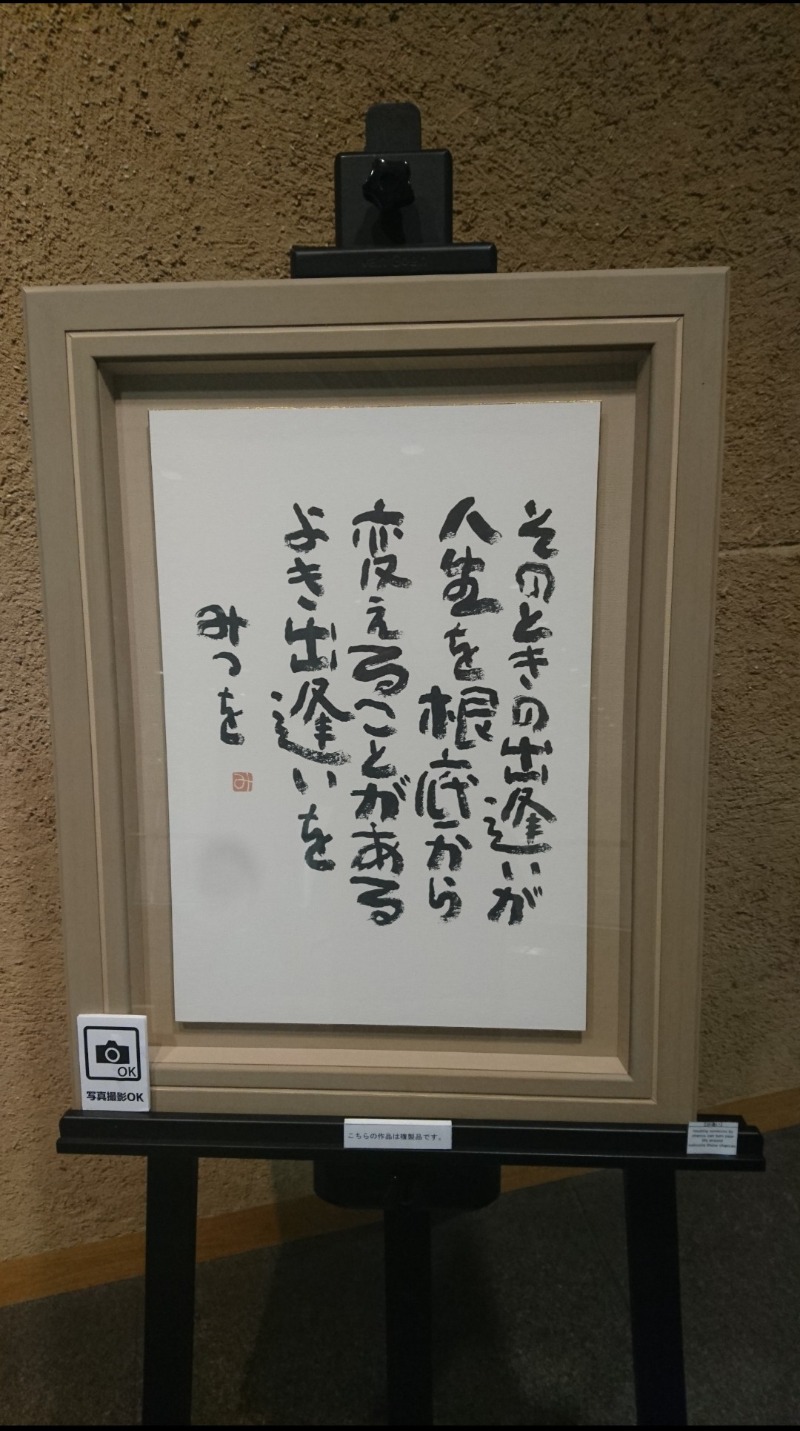 そのときの出逢いが
人生を根底から
変えることがある
よき出逢いを
みつを
み
OK
写真撮影OK
こちらの作品は複製品です。